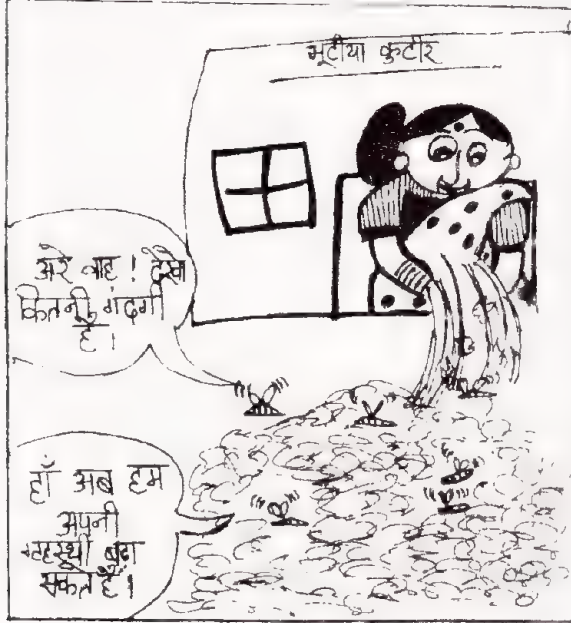 भूटीया कुटीर
अरे वाह! देखो
कितनी गंदगी
है।
हाँ अब हम
अपनी
गृहस्थी बना
सकते हैं।